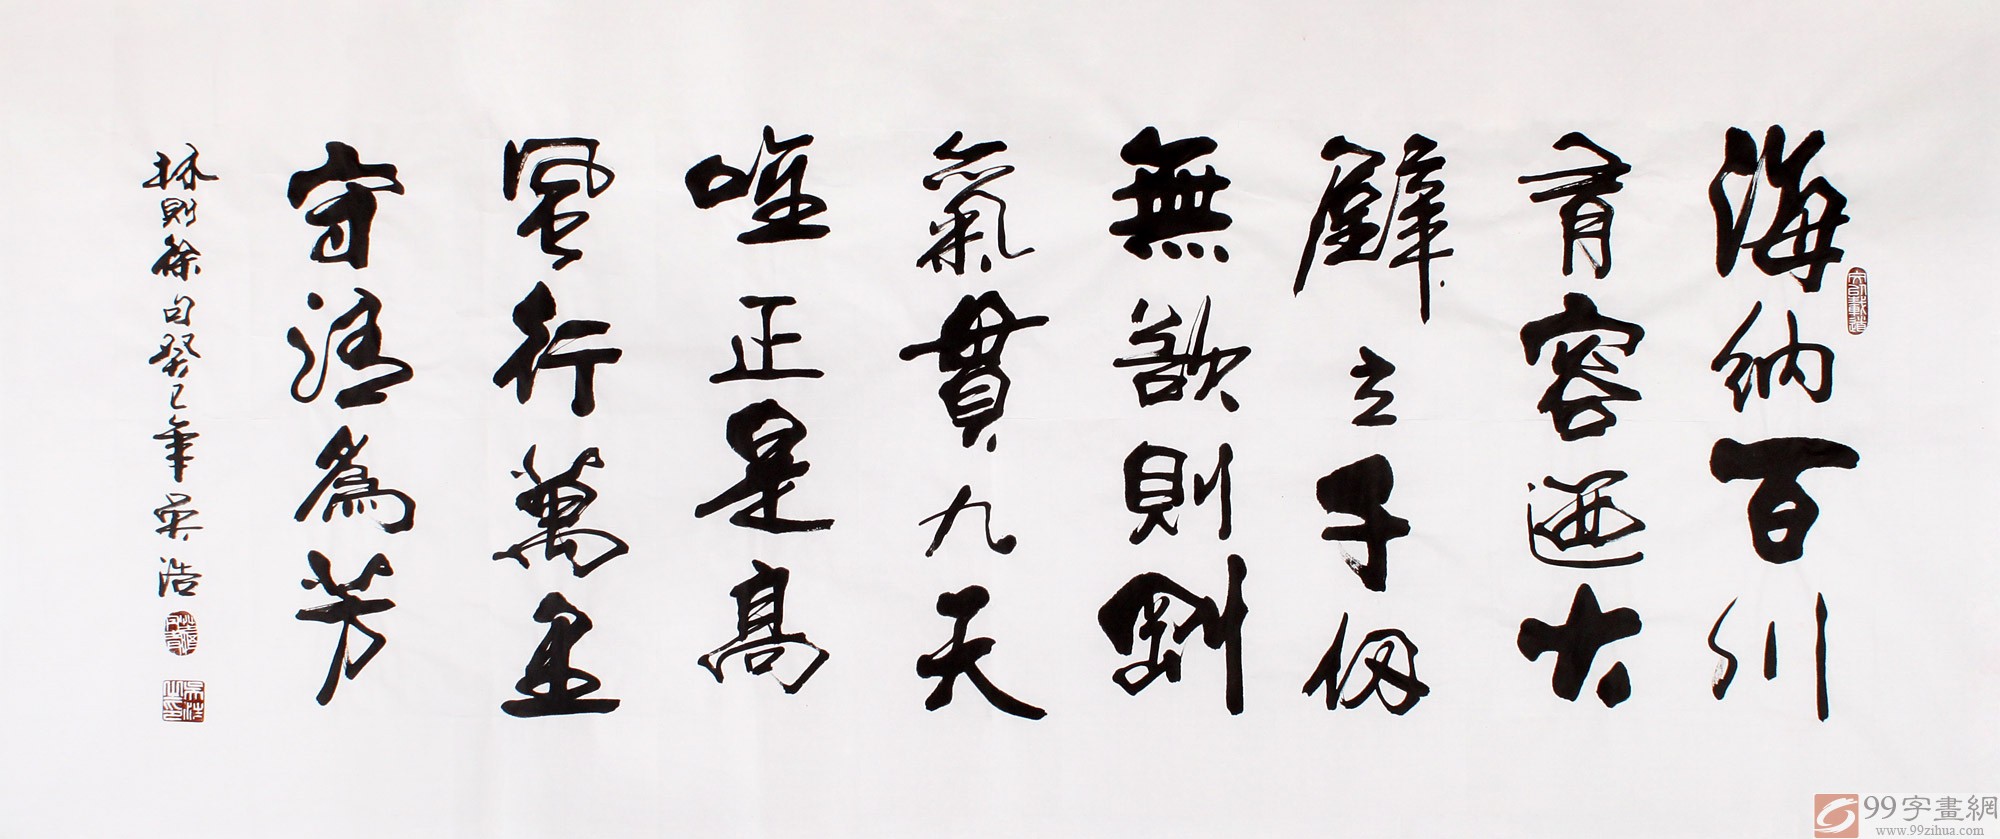 海納百川
有容迺大
壁立千仞
無欲則剛
氣貫九天
唯正是高
風行萬里
守清為芳
林則徐句癸巳年吳浩
文以載道
吳浩之印
99字畫網
www.99zihua.com